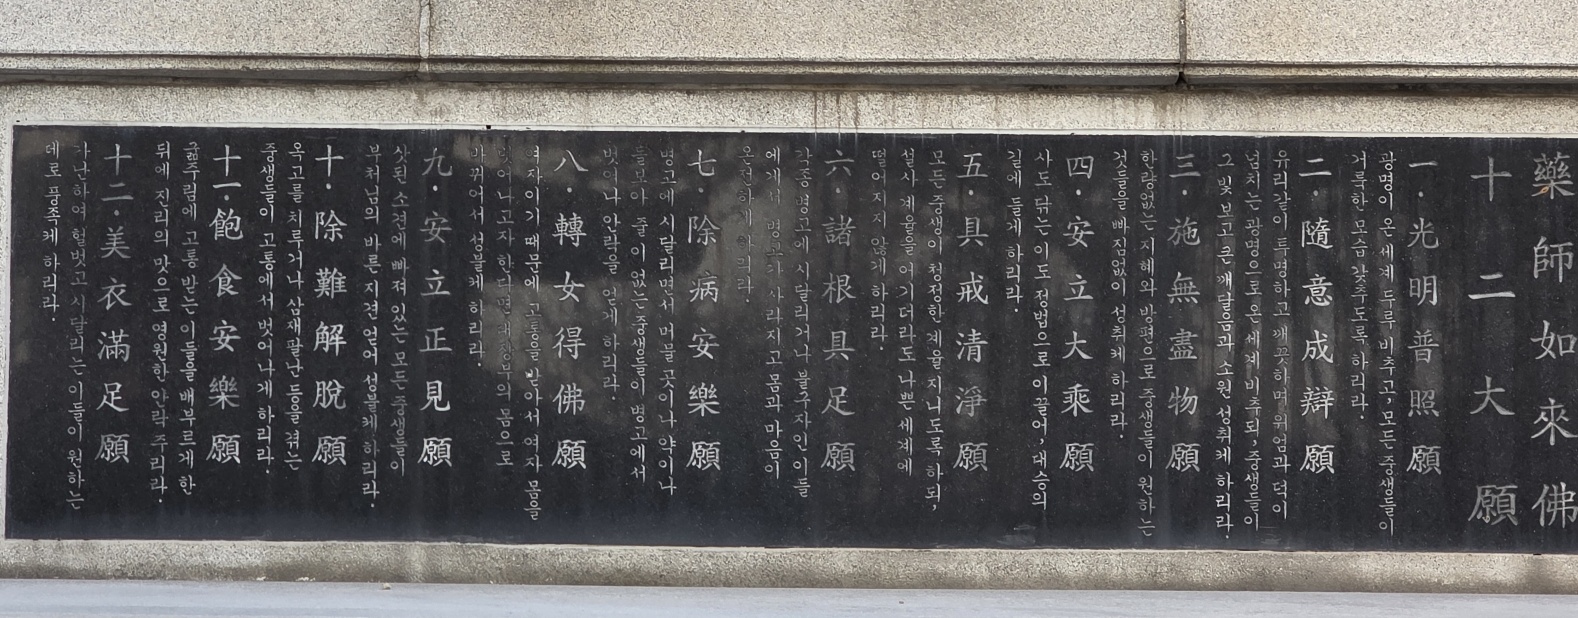 藥師如來佛
十二大願
一·光明普照願
광명이 온 세계 두루 비추고, 모든 중생들이
거룩한 모습 갖추도록 하리라.
二·隨意成辯願
유리같이 투명하고 깨끗하며 위엄과 덕이
넘치는 광명으로 온 세계 비추되, 중생들이
그 빛 보고 큰 깨달음과 소원 성취케 하리라.
三·施無盡物願
한량없는 지혜와 방편으로 중생들이 원하는
것들을 빠짐없이 성취케 하리라.
四·安立大乘願
사도 닦는 이도 정법으로 이끌어, 대승의
길에 들게 하리라.
五·具戒清淨願
모든 중생이 청정한 계율 지니도록 하되,
설사 계율을 어기더라도 나쁜 세계에
떨어지지 않게 하리라.
六·諸根具足願
각종 병고에 시달리거나 불구자인 이들
에게서 병고가 사라지고 몸과 마음이
온전하게 하리라.
七·除病安樂願
병고에 시달리면서 머물 곳이나 약이나
돌봐 줄 이 없는 중생들이 병고에서
벗어나 안락을 얻게 하리라.
八·轉女得佛願
여자이기 때문에 고통을 받아서 여자 몸을
벗어나고자 한다면 대장부의 몸으로
바뀌어서 성불케 하리라.
九·安立正見願
삿된 소견에 빠져 있는 모든 중생들이
부처님의 바른 지견 얻어 성불케 하리라.
十·除難解脫願
옥고를 치루거나 삼재팔난 등을 겪는
중생들이 고통에서 벗어나게 하리라.
十一·飽食安樂願
굶주림에 고통 받는 이들을 배부르게 한
뒤에 진리의 맛으로 영원한 안락 주리라.
十二·美衣滿足願
가난하여 헐벗고 시달리는 이들이 원하는
데로 풍족케 하리라.